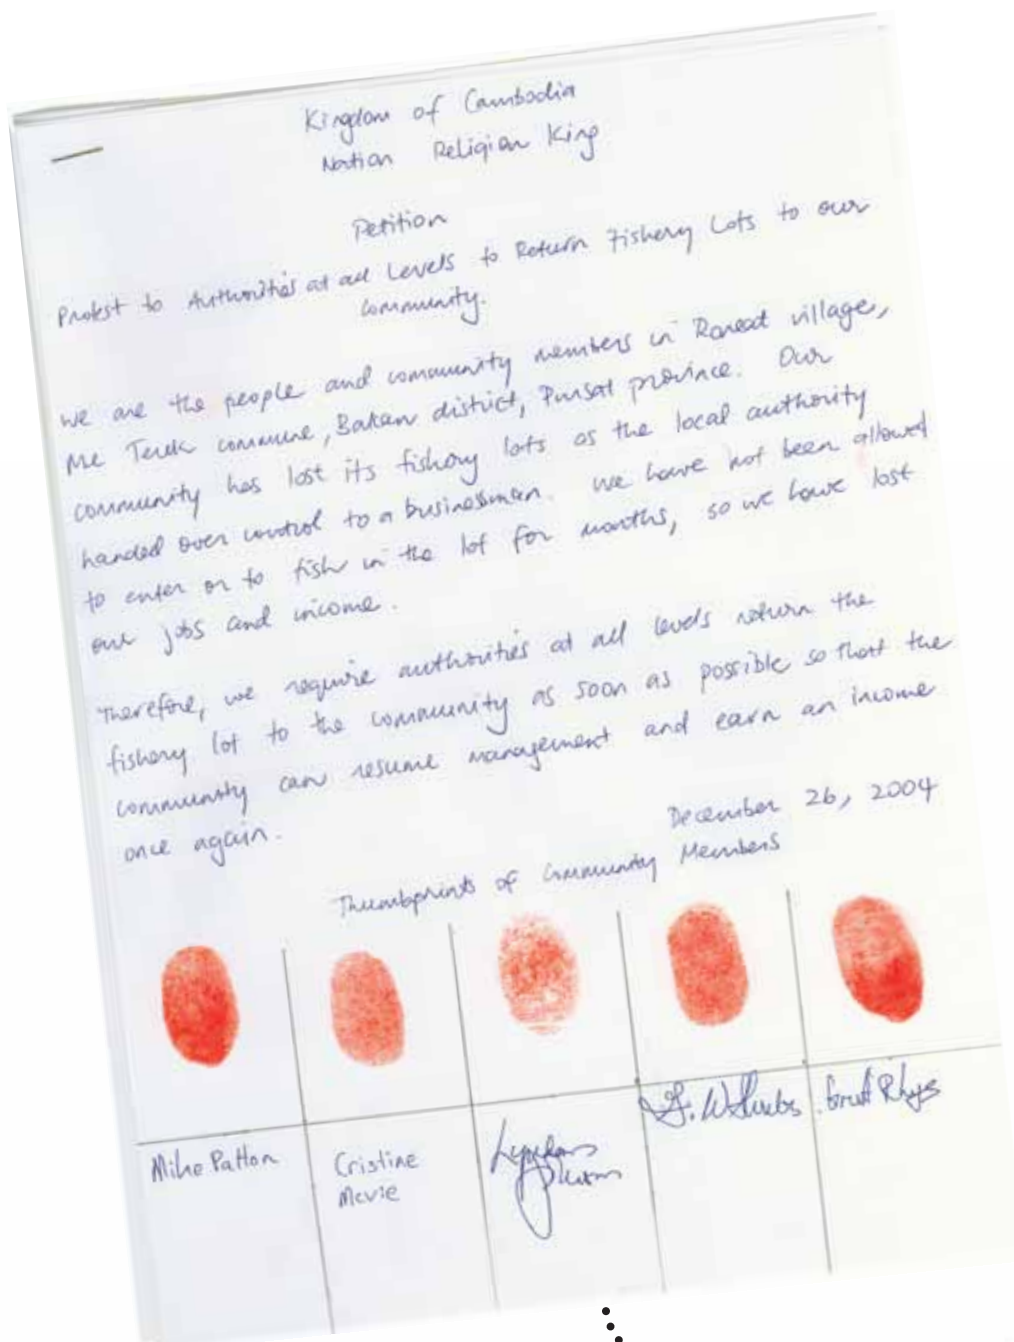 Kingdom of Cambodia
Nation Religion King
Petition
Protest to Authorities at all Levels to Return Fishery Lots to our
Community.
We are the people and community members in Roneat village,
Me Teuk commune, Bakan district, Pursat province. Our
community has lost its fishery lots as the local authority
handed over control to a businessman. We have not been allowed
to enter or to fish in the lot for months, so we have lost
our jobs and income.
Therefore, we require authorities at all levels return the
fishery lot to the community as soon as possible so that the
community can resume management and earn an income
once again.
December 26, 2004
Thumbprints of Community Members
Mike Patton
Cristine
Mcvie
Grant Rhys